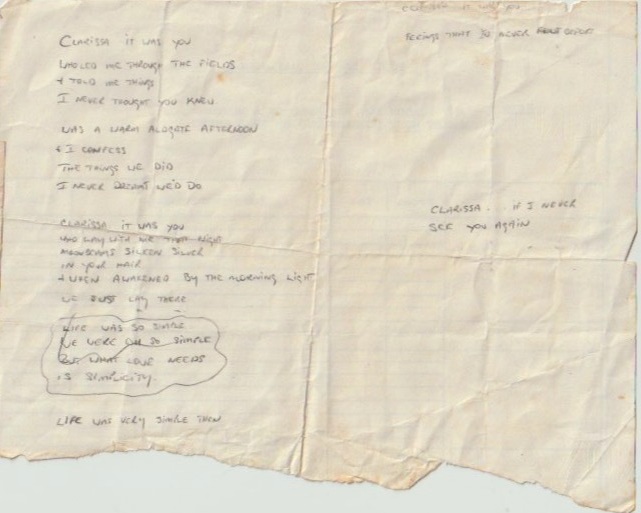 CLARISSA IT WAS YOU
WHO LED ME THROUGH THE FIELDS
+ TOLD ME THINGS
I NEVER THOUGHT YOU KNEW
WAS A WARM ALDGATE AFTERNOON
+ I CONFESS
THE THINGS WE DID
I NEVER DREAMT WE'D DO
CLARISSA IT WAS YOU
WHO LAY WITH ME THAT NIGHT
MOONBEAMS SILKEN SILVER
IN YOUR HAIR
+ WHEN AWAKENED BY THE MORNING LIGHT
WE JUST LAY THERE
LIFE WAS SO SIMPLE
WE WERE SO SIMPLE
BUT WHAT LOVE NEEDS
IS SIMPLICITY.
LIFE WAS VERY SIMPLE THEN
CLARISSA IT WAS YOU
THAT I'D NEVER BEFORE
CLARISSA... IF I NEVER
SEE YOU AGAIN